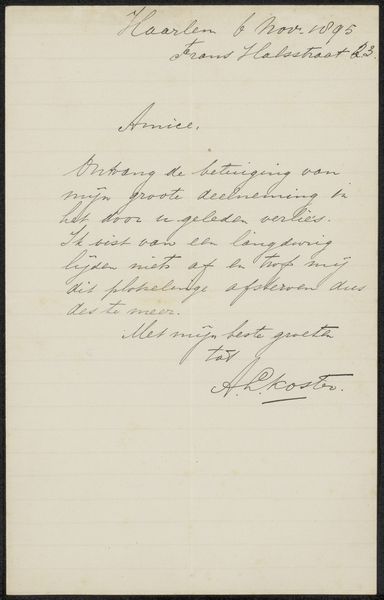 Haarlem 6 Nov. 1895
Frans Halsstraat 23.
Amice,
Ontvang de betuiging van
mijn groote deelneming in
het door u geleden verlies.
Ik wist van een langdurig
lijden niets af en trof mij
dit plotselinge afsterven dus
des te meer.
Met mijn beste groeten
tot
A. L. Koster.